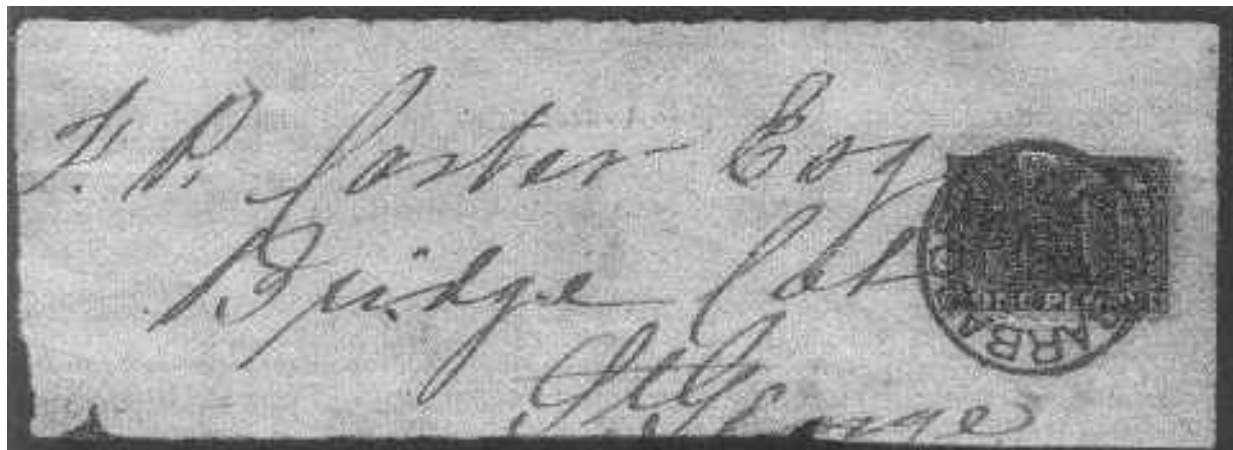 F. P. Carter Esq
Bridge Cot
St George
BARBA